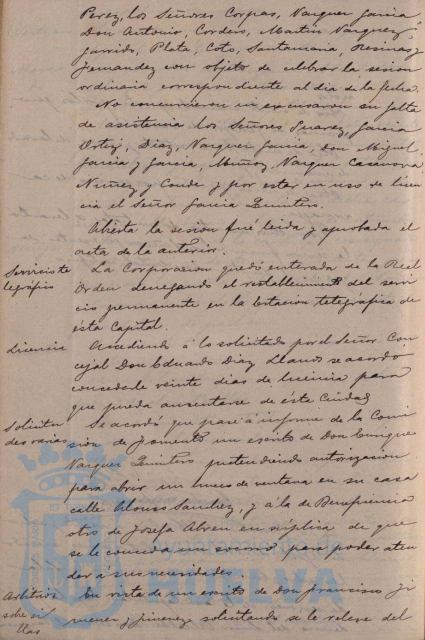 Perez, los Señores Corpas, Vazquez Garcia,
Don Antonio, Cordero, Martin Vazquez,
Garrido, Plata, Coto, Santamaria, Resinas y
Fernandez con objeto de celebrar la sesion
ordinaria correspondiente al dia de la fecha.
No concurrieron ni excusaron su falta
de asistencia los Señores Suarez, Garcia
Ortiz, Diaz, Vazquez Garcia, Don Miguel
Garcia y Garcia, Muñoz, Vazquez Casanova
Nuñez y Conde y por estar en uso de licen
cia el Señor Garcia Quintero.
Abierta la sesion fué leida y aprobada el
acta de la anterior.
Servicio te
legráfico
La Corporacion quedó enterada de la Real
Orden denegando el restablecimiento del servi
cio permanente en la Estacion telegrafica de
esta Capital.
Licencia
Accediendo á lo solicitado por el Señor Con
cejal Don Eduardo Diaz Llanos se acordó
concederle veinte dias de licencia para
que pueda ausentarse de esta Ciudad
Solicitu
des varias
Se acordó que pase á informe de la Comi
sion de Fomento un escrito de Don Enrique
Vazquez Quintero pretendiendo autorizacion
para abrir un hueco de ventana en su casa
calle Alonso Sanchez, y á la de Beneficencia
otro de Josefa Abreu en súplica de que
se le conceda un socorro para poder aten
der á sus necesidades.
Arbitrios
sobre si
llas
En vista de un escrito de Don Francisco Ji
menez y Jimenez solicitando se le releve del
HUELVA